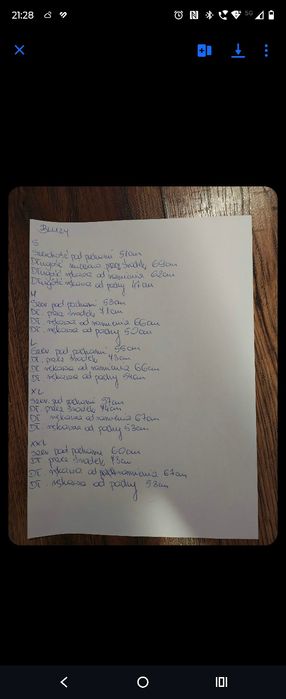 21:28
5G
Bluzy
S
Szerokość pod pachami 51cm
Długość przez środek 69cm
Długość rękawa od ramienia 62cm
Długość rękawa od pachy 47cm
M
Szer pod pachami 53cm
Dł. przez środek 71cm
Dł. rękawa od ramienia 66cm
Dł. rękawa od pachy 50cm
L
Szer. pod pachami 55cm
Dł. przez środek 73cm
Dł rękawa od ramienia 66cm
Dł. rękawa od pachy 54cm
XL
Szer. pod pachami 57cm
Dł. przez środek 74cm
Dł. rękawa od ramienia 67cm
Dł. rękawa od pachy 53cm
XXL
Szer pod pachami 60cm
Dł przez środek 73cm
Dł. rękawa od ramienia 67cm
Dł. rękawa od pachy 53cm